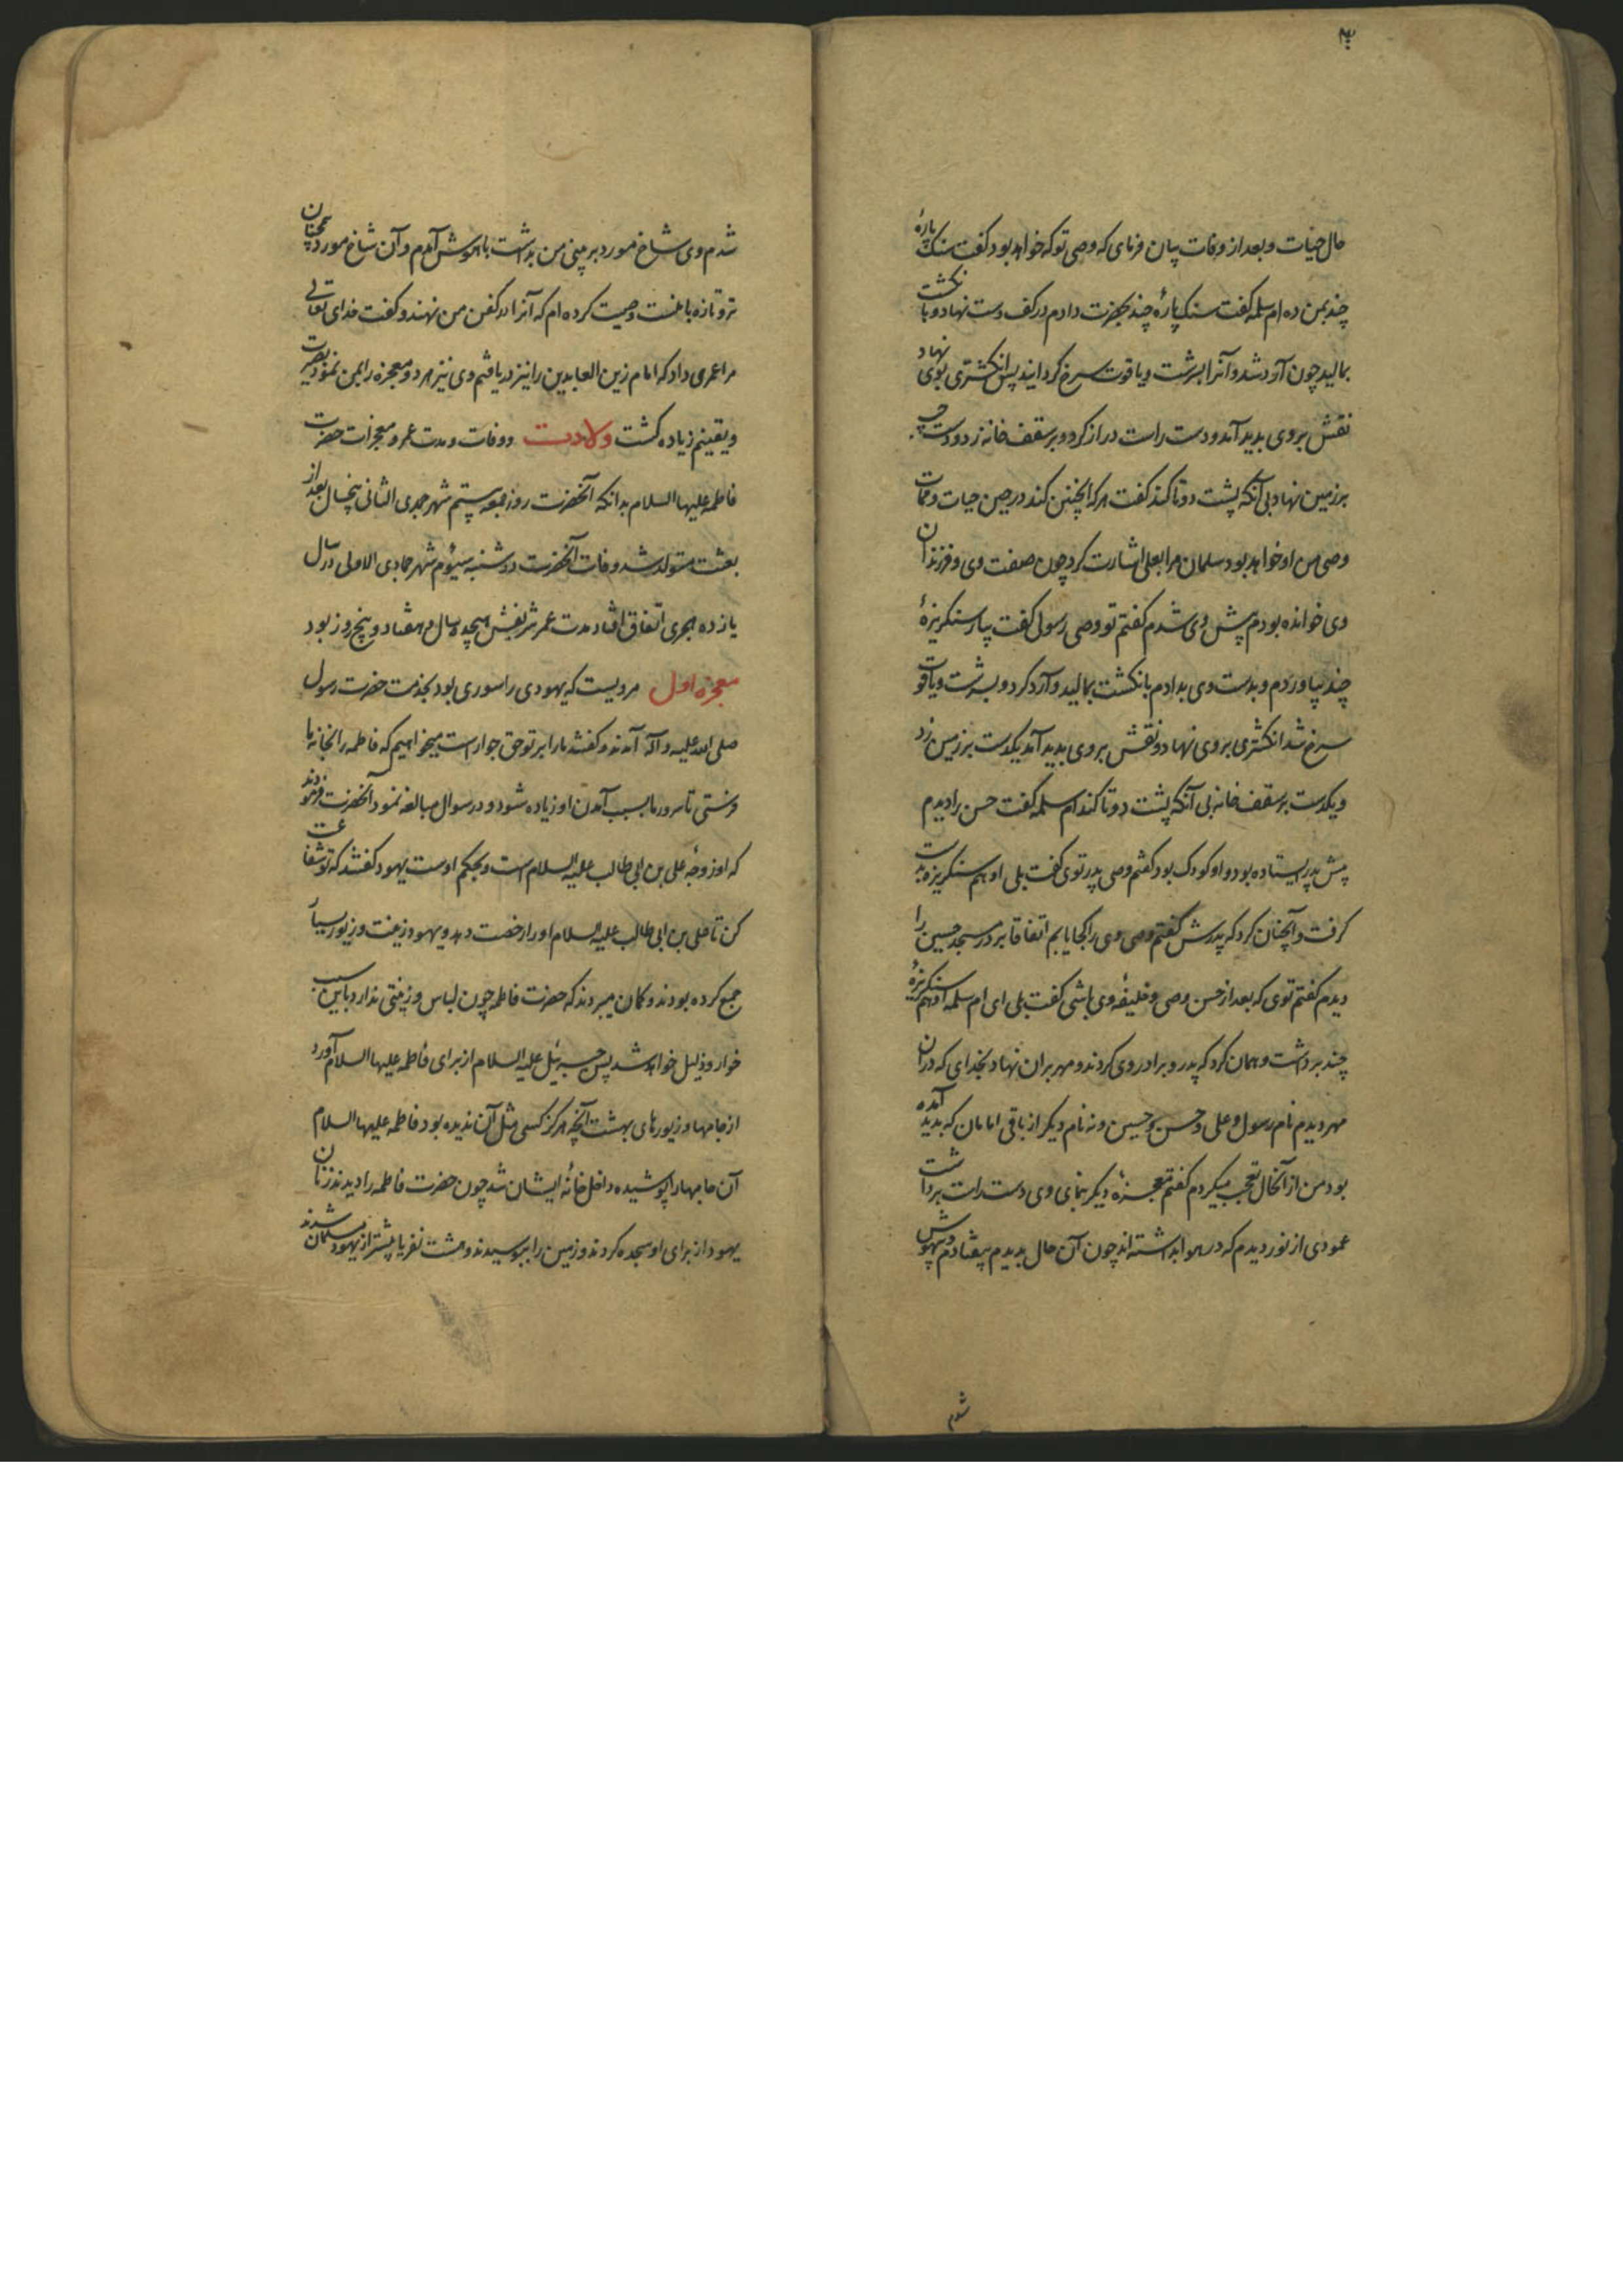 حال حیات و بعد از وفات بیان فرمای که وصی تو که خواهد بود گفت سنک پارهٔ
چند بمن ده ام سلمه گفت سنک پارهٔ چند بحضرت دادم در کف دست نهاد و با نکشت
بمالید چون آرد شد و آنرا بسرشت و یاقوت سرخ کردانید پس انکشتری بوی نهاد
نقش بروی بدید آمد و دست راست دراز کرد و بر سقف خانه زد و دست چپ
بر زمین نهاد بی آنکه پشت دوتا کند گفت هرکه اینچنین کند در حین حیات و ممات
وصی من او خواهد بود سلمان مرا بعلی اشارت کرد چون صفت وی و فرزندان
وی خوانده بودم پیش وی شدم گفتم تو وصی رسولی گفت بیار سنکریزهٔ
چند بیاوردم و بدست وی بدادم بانکشت بمالید و آرد کرد و بسرشت و یاقوت
سرخ شد انکشتری بروی نهاد و نقش بروی بدید آمد یکدست بر زمین زد
و یکدست بر سقف خانه بی آنکه پشت دوتا کند ام سلمه گفت حسن را دیدم
پیش پدر ایستاده بود و او کودک بود گفتم وصی پدر توی گفت بلی او هم سنکریزه بدست
کرفت و آنچنان کرد که پدرش گفتم وصی وی را کجا یابم اتفاقا بر در مسجد حسین را
دیدم گفتم توی که بعد از حسن وصی و خلیفهٔ وی باشی گفت بلی ای ام سلمه او هم سنکریزهٔ
چند برداشت و همان کرد که پدر و برادر وی کردند و مهر بران نهاد بخدای که دران
مهر دیدم نام رسول و علی و حسن و حسین و نه نام دیکر از باقی امامان که بدید آمده
بود من از آنحال تعجب میکردم گفتم معجزهٔ دیکر بنمای وی دست راست برداشت
عمودی از نور دیدم که در هوا بداشته اند چون آن حال بدیدم بیفتادم و بیهوش
شدم
شدم وی شاخ مورد بر بینی من بداشت باهوش آمدم و آن شاخ مورد همچنان
تر و تازه با منست وصیت کرده ام که آنرا در کفن من نهند و گفت خدای تعالی
مرا عمری داد که امام زین العابدین را نیز دریافتم وی نیز هر دو معجزه را بمن نمود بصیرت
و یقینم زیاده کشت ولادت و وفات و مدت عمر و معجزات حضرت
فاطمه علیها السلام بدانکه آنحضرت روز جمعه بیستم شهر جمدی الثانی پنجسال بعد از
بعثت متولد شد و وفات آنحضرت دوشنبه سیوم شهر جمادی الاولی در سال
یازده هجری اتفاق افتاد مدت عمر شریفش هیجده سال و هفتاد و پنج روز بود
معجزه اول مرویست که یهودی را سوری بود بخدمت حضرت رسول
صلی الله علیه و آله آمدند و گفتند ما را بر تو حق جوار است میخواهیم که فاطمه را بخانه ما
فرستی تا سرور ما بسبب آمدن او زیاده شود و در سوال مبالغه نمود آنحضرت فرمودند
که او زوجهٔ علی بن ابی طالب علیه السلام است و بحکم اوست یهود گفتند که تو شفاعت
کن تا علی بن ابی طالب علیه السلام او را رخصت دهد و یهود زینت و زیور بسیار
جمع کرده بودند و کمان میبردند که حضرت فاطمه چون لباس و زینتی ندارد باین سبب
خوار و ذلیل خواهد شد پس جبرئیل علیه السلام از برای فاطمه علیها السلام آورد
از جامها و زیورهای بهشت آنچه هرکز کسی مثل آن ندیده بود فاطمه علیها السلام
آن جامها را پوشیده داخل خانهٔ ایشان شد چون حضرت فاطمه را دیدند زنان
یهود از برای او سجده کردند و زمین را ببوسیدند و هشت نفر یا بیشتر از یهود مسلمان شدند